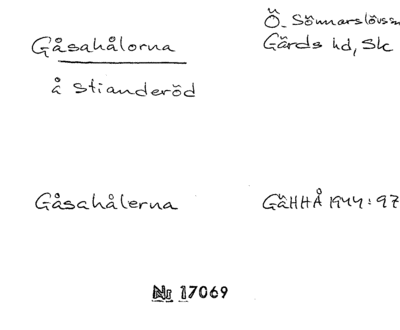 Gåsahålorna
å Stianderöd
Ö. Sönnarslövs
Gärds hd, Sk
Gåsahålerna
GäHHÅ 1944:97
Nr 17069